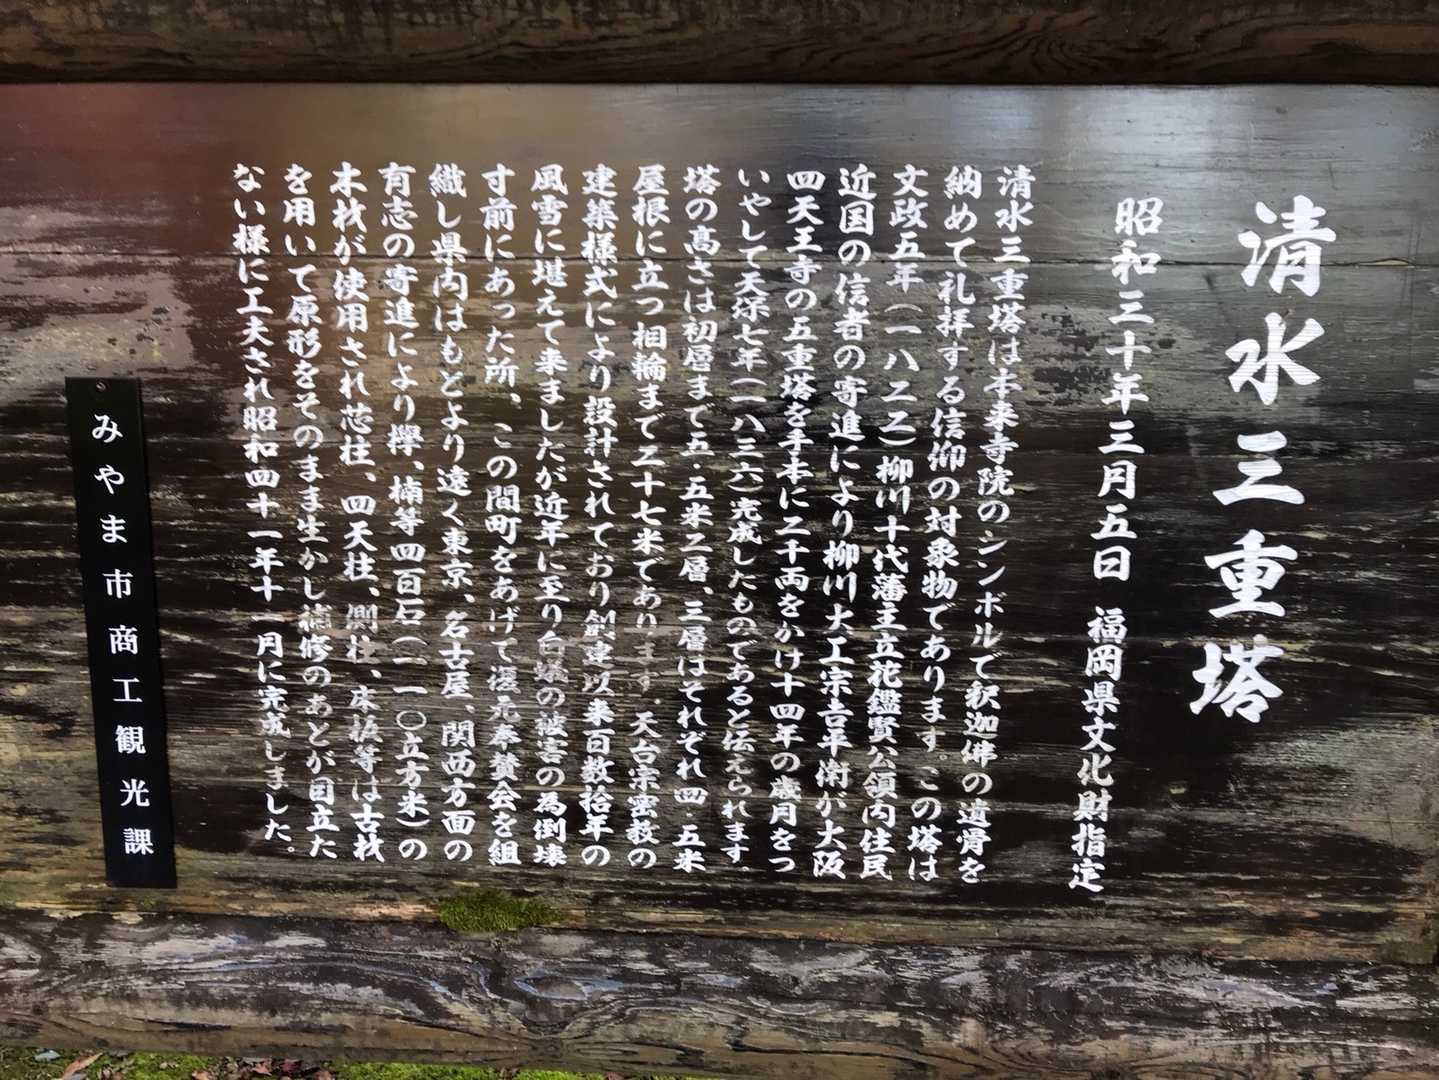 清水三重塔
昭和三十年三月五日 福岡県文化財指定
清水三重塔は本来寺院のシンボルで釈迦佛の遺骨を
納めて礼拝する信仰の対象物であります。この塔は
文政五年(一八二二)柳川十代藩主立花鑑賢公領内住民
近国の信者の寄進により柳川大工宗吉平衛が大阪
四天王寺の五重塔を手本に二千両をかけ十四年の歳月をつ
いやして天保七年(一八三六)完成したものであると伝えられます。
塔の高さは初層まで五・五米二層、三層はそれぞれ四・五米
屋根に立つ相輪まで二十七米であります。天台宗密教の
建築様式により設計されており創建以来百数拾年の
風雪に堪えて来ましたが近年に至り白蟻の被害の為倒壊
寸前にあった所、この間町をあげて復元奉賛会を組
織し県内はもとより遠く東京、名古屋、関西方面の
有志の寄進により欅、楠等四百石(一一〇立方米)の
木材が使用され芯柱、四天柱、側柱、床板等は古材
を用いて原形をそのまま生かし補修のあとが目立た
ない様に工夫され昭和四十一年十一月に完成しました。
みやま市商工観光課